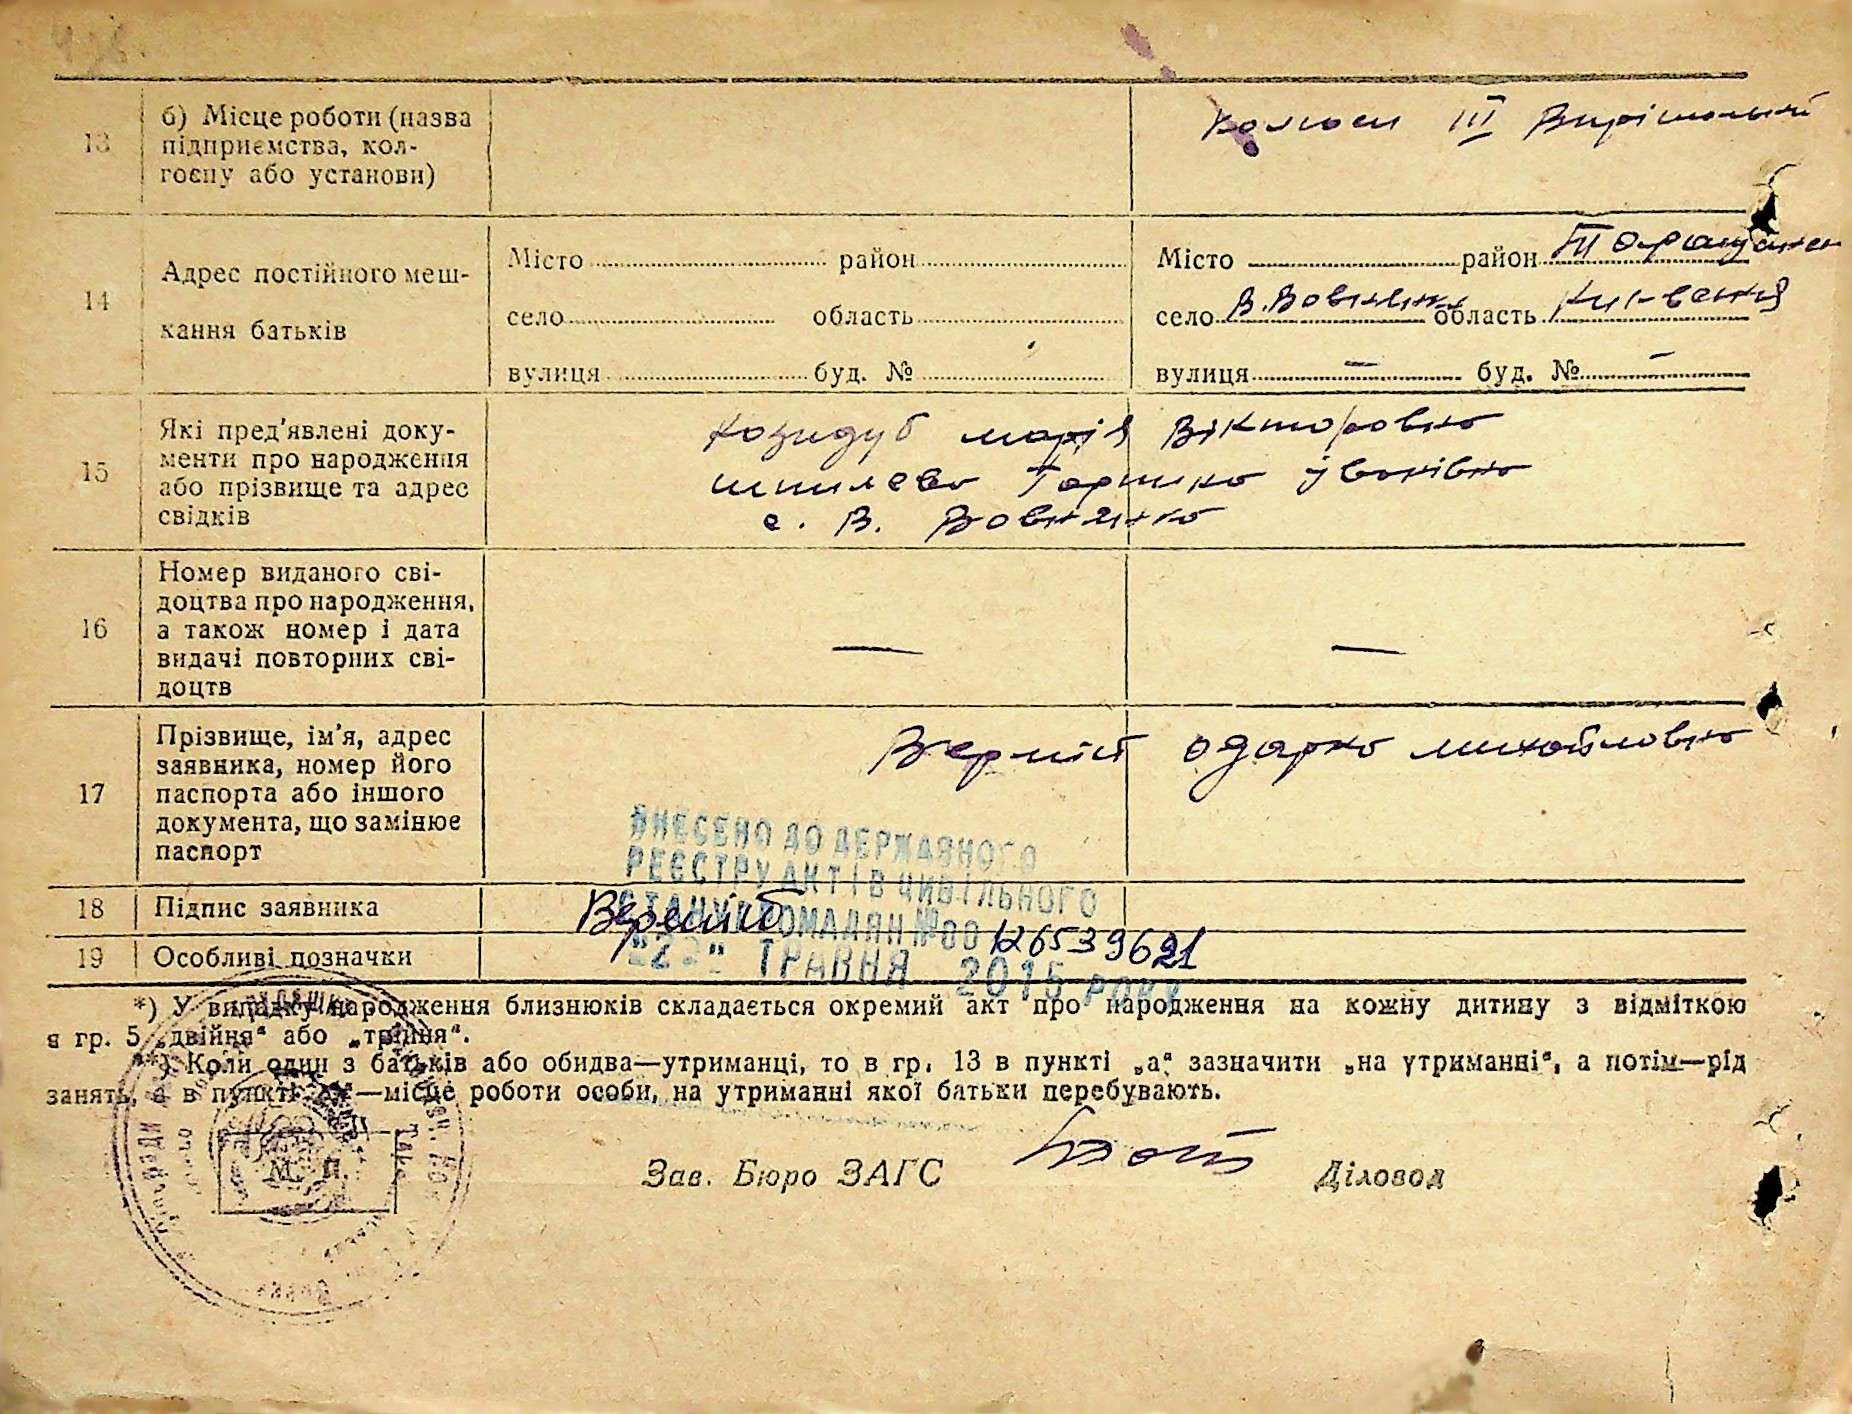 13 б) Місце роботи (назва
підприємства, кол-
госпу або установи)
Колгосп III Вирішальний
14 Адрес постійного меш-
кання батьків
Місто район
село область
вулиця буд. №
Місто район Таращанск
село В. Вовнянка область Київська
вулиця — буд. № —
15 Які пред'явлені доку-
менти про народження
або прізвище та адрес
свідків
Козидуб Марія Вікторовна
Іванівна
с. В. Вовнянка
16 Номер виданого сві-
доцтва про народження,
а також номер і дата
видачі повторних сві-
доцтв
— —
17 Прізвище, ім'я, адрес
заявника, номер його
паспорта або іншого
документа, що замінює
паспорт
Одарка Михайловна
ВНЕСЕНО ДО ДЕРЖАВНОГО
РЕЄСТРУ АКТІВ ЦИВІЛЬНОГО
СТАНУ ГРОМАДЯН №00126539621
ТРАВНЯ 2015 РОКУ
18 Підпис заявника
19 Особливі позначки
*) У випадку народження близнюків складається окремий акт про народження на кожну дитину з відміткою
в гр. 5 „двійня“ або „трійня“.
**) Коли один з батьків або обидва—утриманці, то в гр. 13 в пункті „а“ зазначити „на утриманні“, а потім—рід
занять, а в пункті —місце роботи особи, на утриманні якої батьки перебувають.
М. П.
Зав. Бюро ЗАГС Діловод